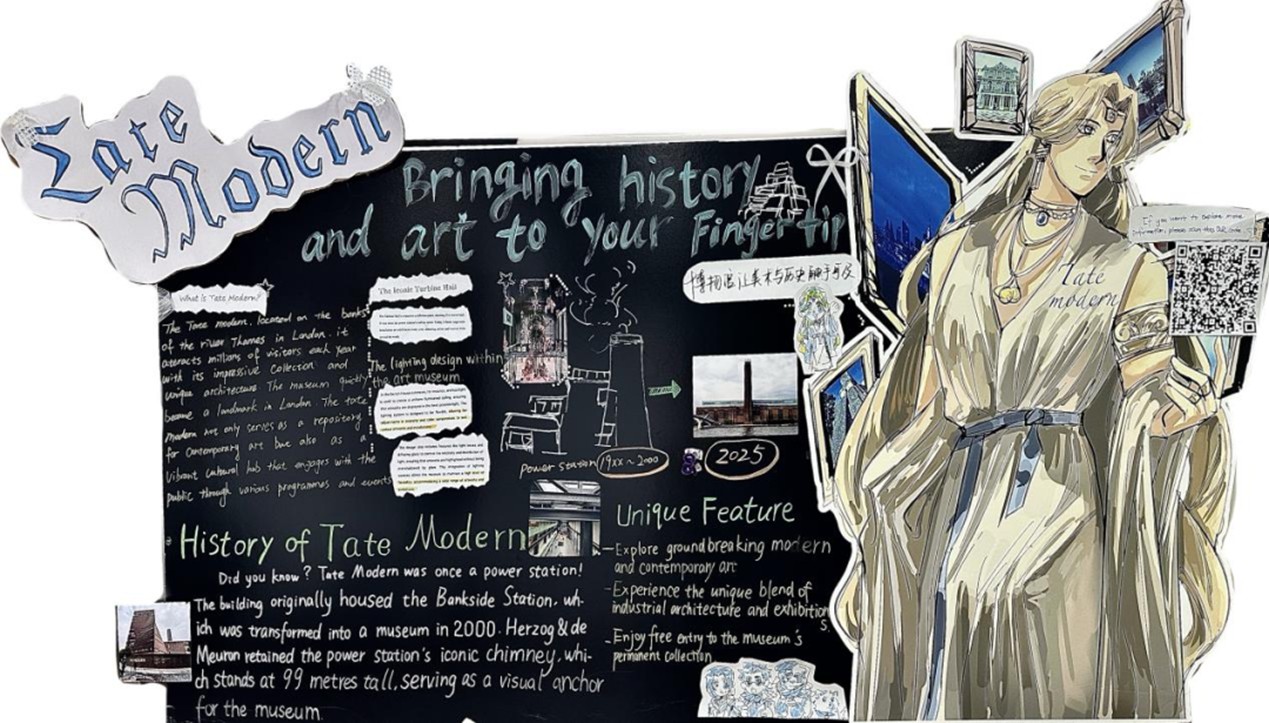 Tate
Modern
Bringing history
and art to your Fingertip
What is Tate Modern?
The Tate modern, located on the banks
of the river Thames in London. it
attracts millions of visitors each year
with its impressive Collection and
unique architecture The museum quickly
became a landmark in London. The tate
modern not only serves as a repository
for Contemporary art but also as a
Vibrant Cultural hub that engages with the
public through various programmes and events
The Inside Turbine Hall
The lighting design within
the art museum
博物馆让美术与历史触手可及
power station
19xx~2000
2025
History of Tate Modern
Did you know? Tate Modern was once a power station!
The building originally housed the Bankside Station. wh-
ich was transformed into a museum in 2000. Herzog & de
Meuron retained the power station's iconic chimney, whi-
ch stands at 99 metres tall, serving as a visual anchor
for the museum
Unique Feature
-Explore groundbreaking modern
and contemporary art
-Experience the unique blend of
industrial architecture and exhibition
s.
-Enjoy free entry to the museum's
permanent collection
Tate
modern
If you want to explore more
information, please scan this QR code